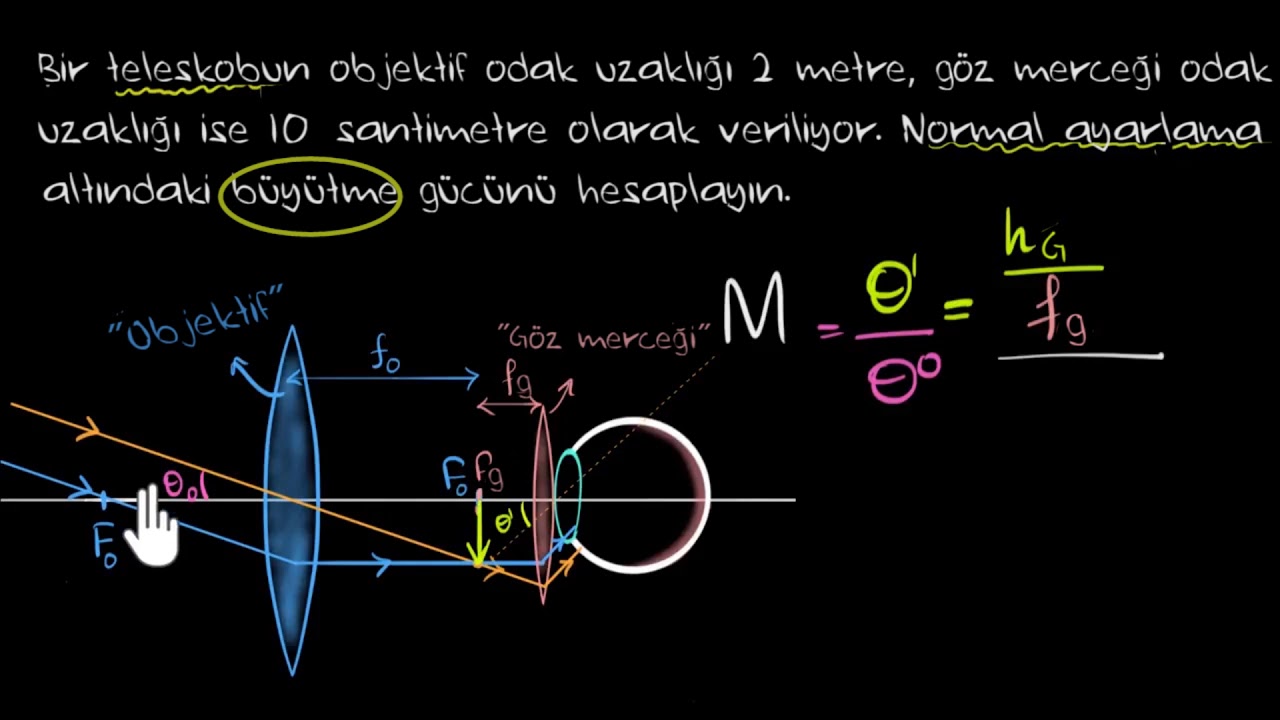 Bir teleskobun objektif odak uzaklığı 2 metre, göz merceği odak
uzaklığı ise 10 santimetre olarak veriliyor. Normal ayarlama
altındaki büyütme gücünü hesaplayın.
"Objektif"
f₀
"Göz merceği"
f_g
M = θ' / θ₀ = h_G / f_g
θ₀
F₀
F₀ f_g
θ'